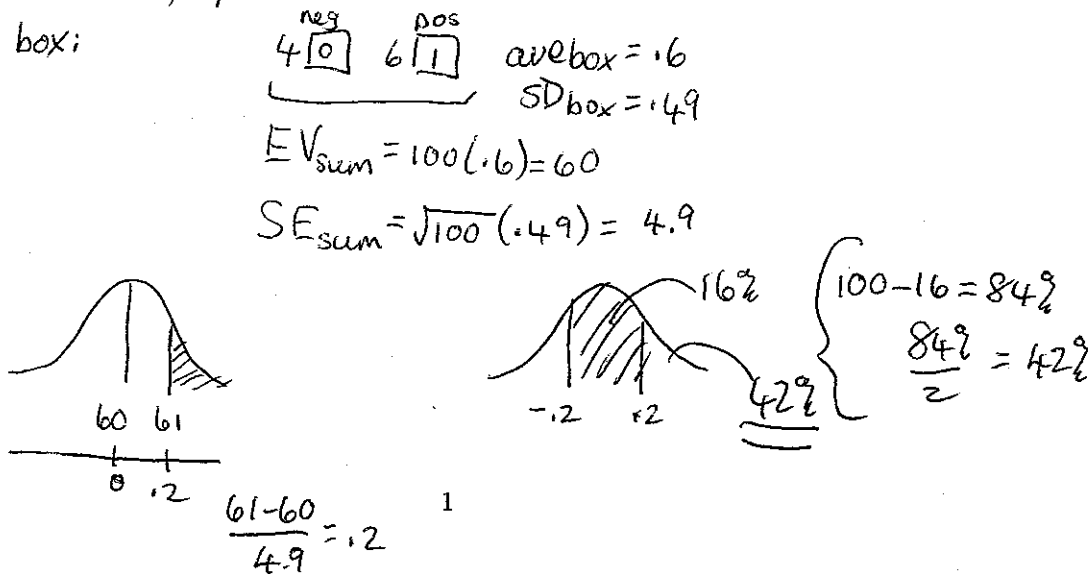 neg pos
box: 4 0 6 1 ave box = .6
SD box = .49
EV sum = 100(.6) = 60
SE sum = √100 (.49) = 4.9
16% 100-16 = 84%
84%/2 = 42%
60 61 -.2 .2 42%
0 .2
61-60/4.9 = .2
1